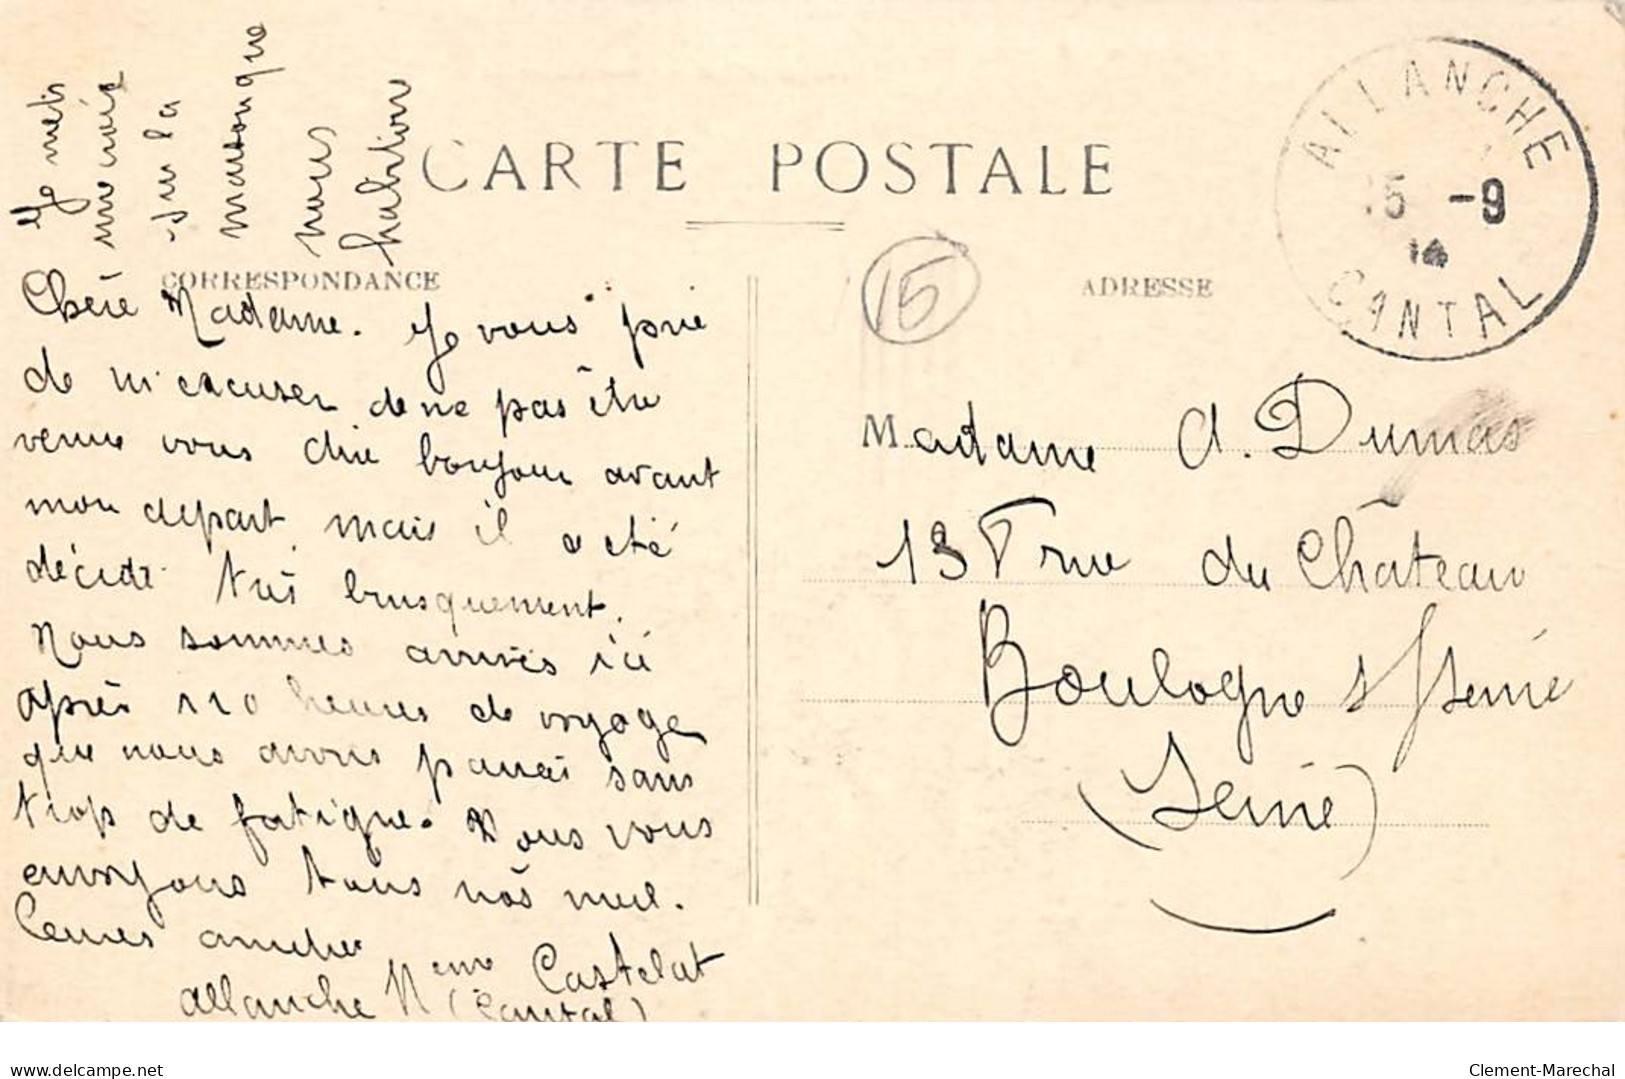 Je mets
une croix
sur la
maison que
nous
habitons
CARTE POSTALE
ALLANCHE
15 -9
14
CANTAL
CORRESPONDANCE
15
ADRESSE
Chère Madame. Je vous prie
de m'excuser de ne pas être
venue vous dire bonjour avant
mon départ mais il a été
décidé très brusquement.
Nous sommes arrivés ici
après 110 heures de voyage
que nous avons passés sans
trop de fatigue. Nous vous
envoyons tous nos meil.
leures amitiés
Castelat
Allanche (Cantal)
Madame A. Dumas
13 rue du Château
Boulogne s/Seine
(Seine)
delcampe.net
Clement-Marechal